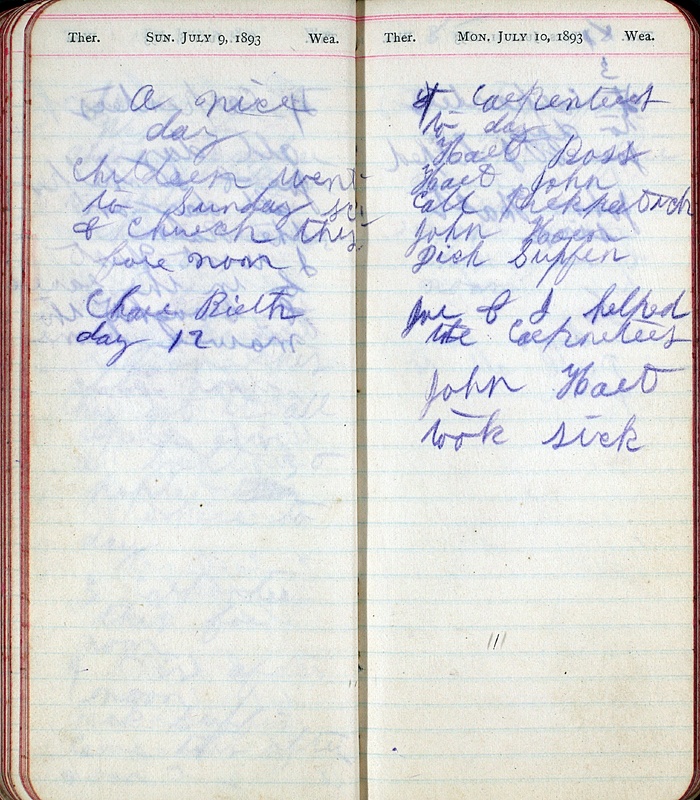 Ther. SUN. JULY 9, 1893 Wea.
A nice
day
Children went
to Sunday sc.
& Church this
fore noon
Chas Birth
day 12
Ther. MON. JULY 10, 1893 Wea.
Carpenters
to day
Hart Ross
Hart John
Call
John
Dick
& I helped
the Carpenters
John Hart
took sick